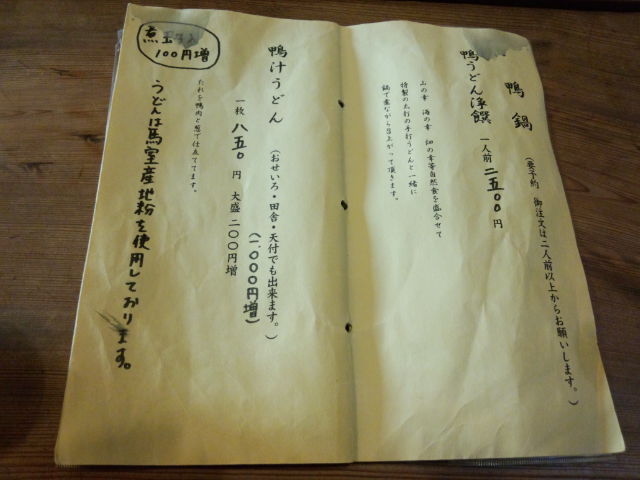 鴨鍋
(要予約 御注文は二人前以上からお願いします。)
鴨うどん浮饌 一人前 二五〇〇円
山の幸 海の幸 畑の幸等自然食を盛合せて
特製の太打の手打うどんと一緒に
鍋で煮ながら召上がって頂きます。
鴨汁うどん
(おせいろ・田舎・天付でも出来ます。)
(1,000円増)
一枚 八五〇円 大盛 二〇〇円増
たれを鴨肉と葱で仕立ててます。
うどんは馬室産地粉を使用しております。
煮玉子入
100円増